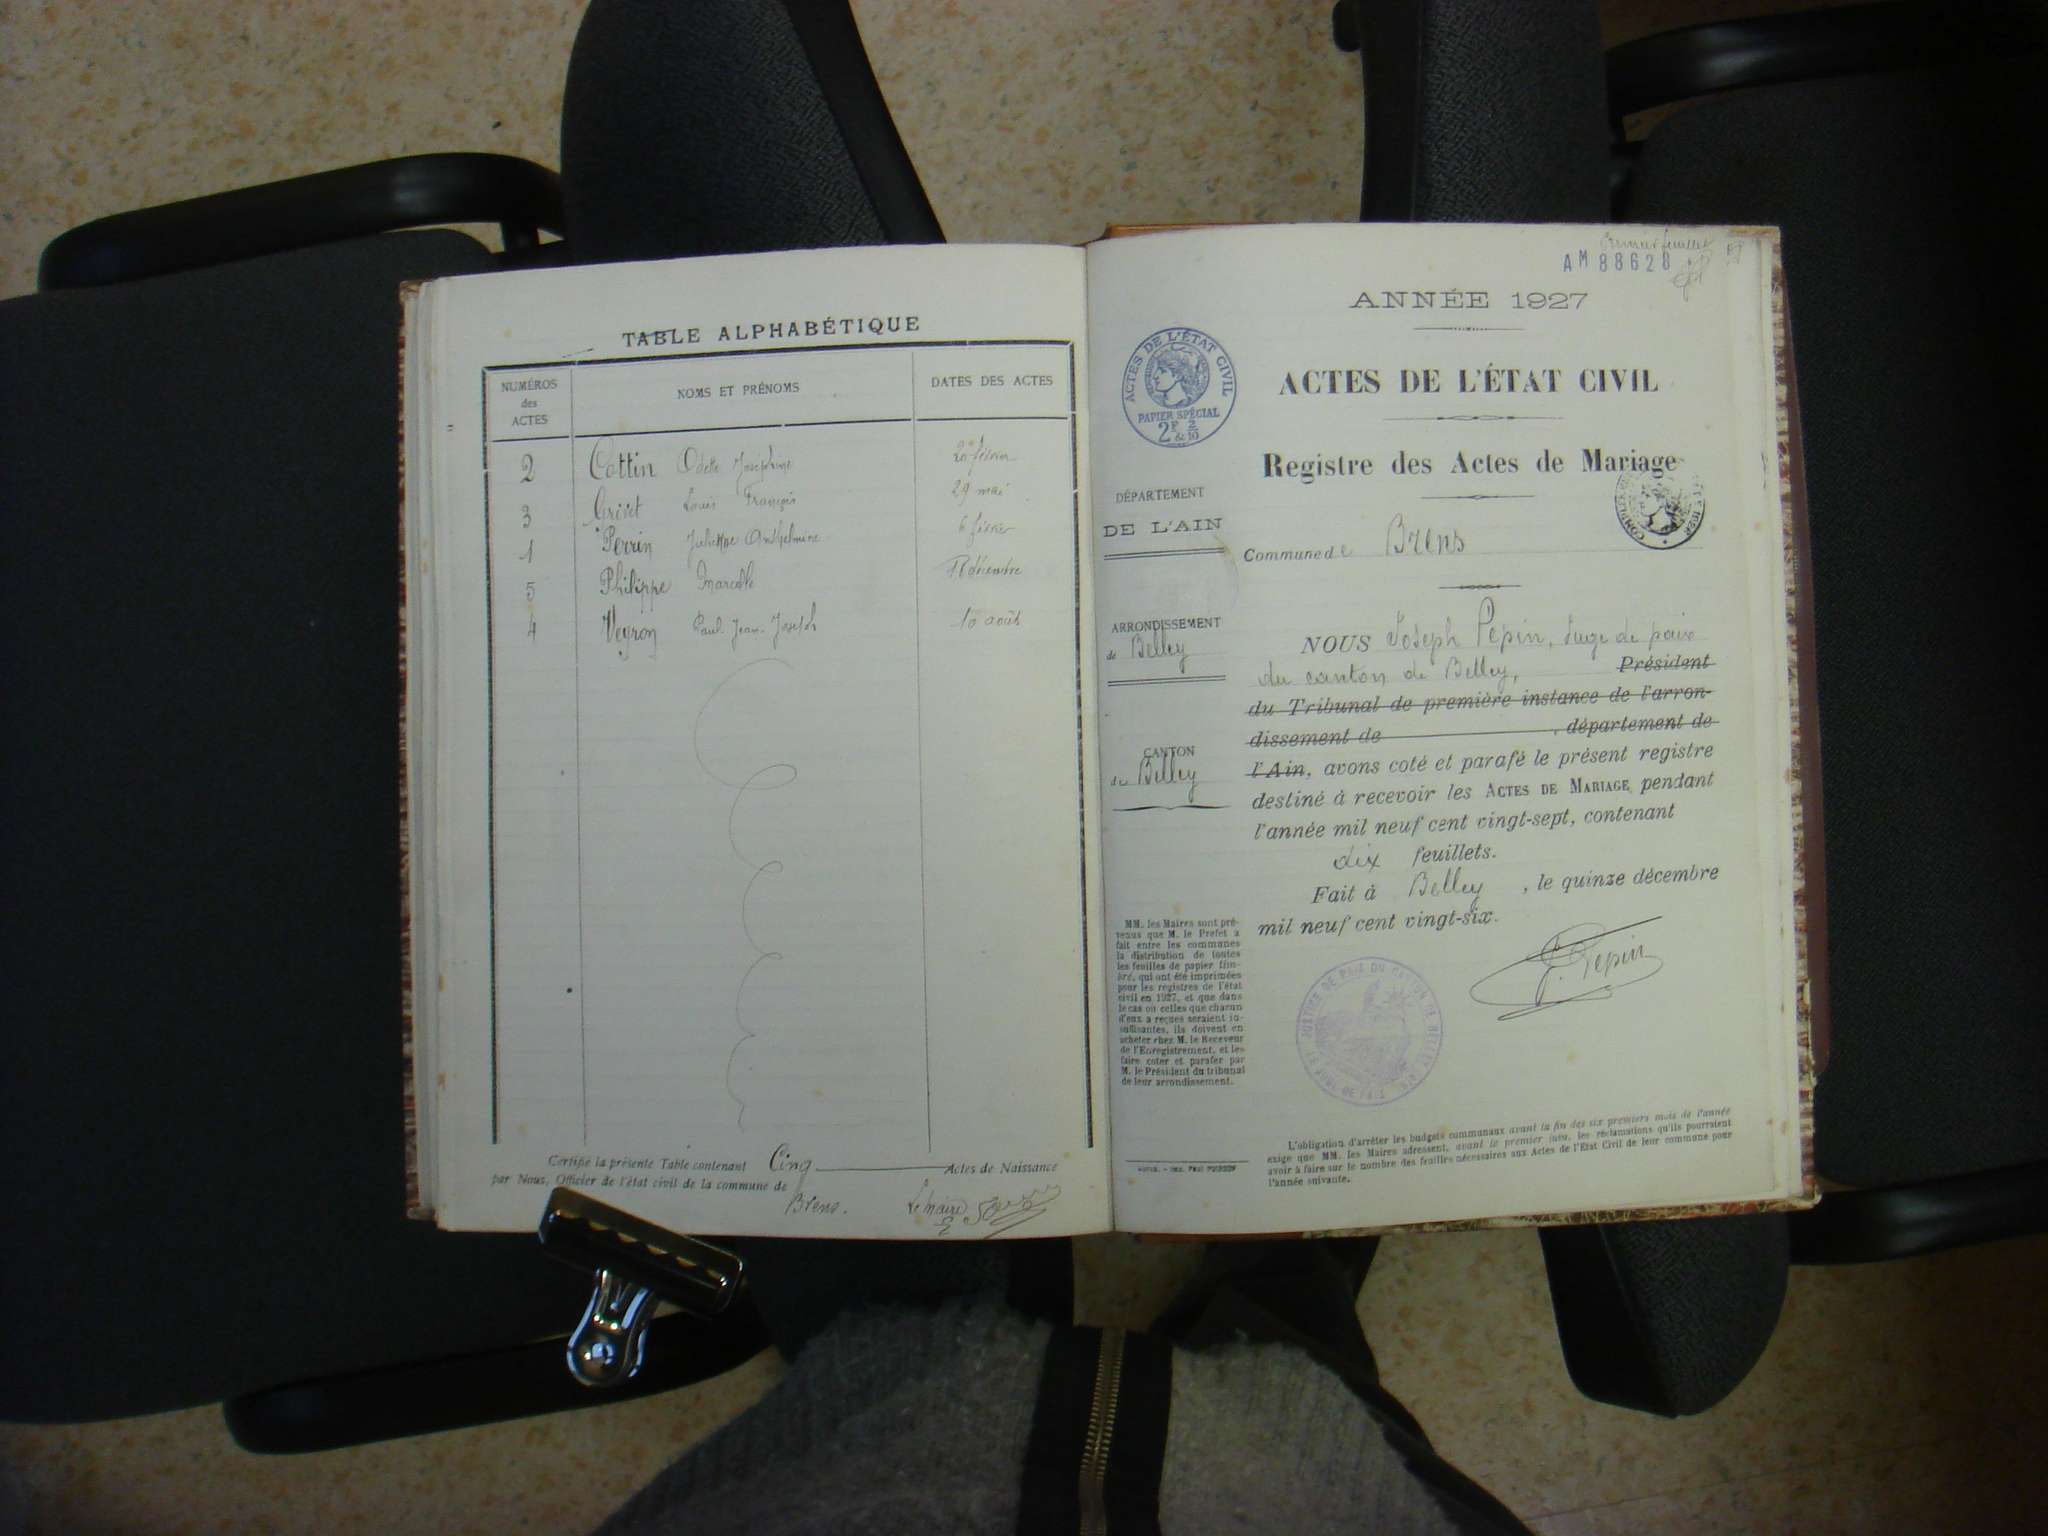 TABLE ALPHABÉTIQUE
NUMÉROS des ACTES
NOMS ET PRÉNOMS
DATES DES ACTES
2 Cottin Odette Joséphine 20 février
3 Grivet Louis François 29 mai
1 Perrin Juliette Anthelmine 6 février
5 Philippe Marcelle
4 Veyron Paul Jean Joseph 10 août
Certifié la présente Table contenant Cinq Actes de Naissance
par Nous, Officier de l'état civil de la commune de
Brens. Le Maire
Premier feuillet
AM 88628
ANNÉE 1927
ACTES DE L'ÉTAT CIVIL
PAPIER SPÉCIAL
ACTES DE L'ÉTAT CIVIL
Registre des Actes de Mariage
DÉPARTEMENT
DE L'AIN
Commune de Brens
ARRONDISSEMENT
de Belley
CANTON
de Belley
NOUS Joseph Pepin, Juge de paix
du canton de Belley, Président
du Tribunal de première instance de l'arron-
dissement de , département de
l'Ain, avons coté et parafé le présent registre
destiné à recevoir les ACTES DE MARIAGE pendant
l'année mil neuf cent vingt-sept, contenant
dix feuillets.
Fait à Belley, le quinze décembre
mil neuf cent vingt-six.
Pepin
MM. les Maires sont pré-
venus que M. le Préfet a
fait entre les communes
la distribution de toutes
les feuilles de papier tim-
bré, qui ont été imprimées
pour les registres de l'état
civil en 1927, et que dans
le cas où celles que chacun
d'eux a reçues seraient in-
suffisantes, ils doivent en
acheter chez M. le Receveur
de l'Enregistrement, et les
faire coter et parafer par
M. le Président du tribunal
de leur arrondissement.
L'obligation d'arrêter les budgets communaux avant la fin des six premiers mois de l'année
exige que MM. les Maires adressent, avant le premier juin, les réclamations qu'ils pourraient
avoir à faire sur le nombre des feuilles nécessaires aux Actes de l'État Civil de leur commune pour
l'année suivante.